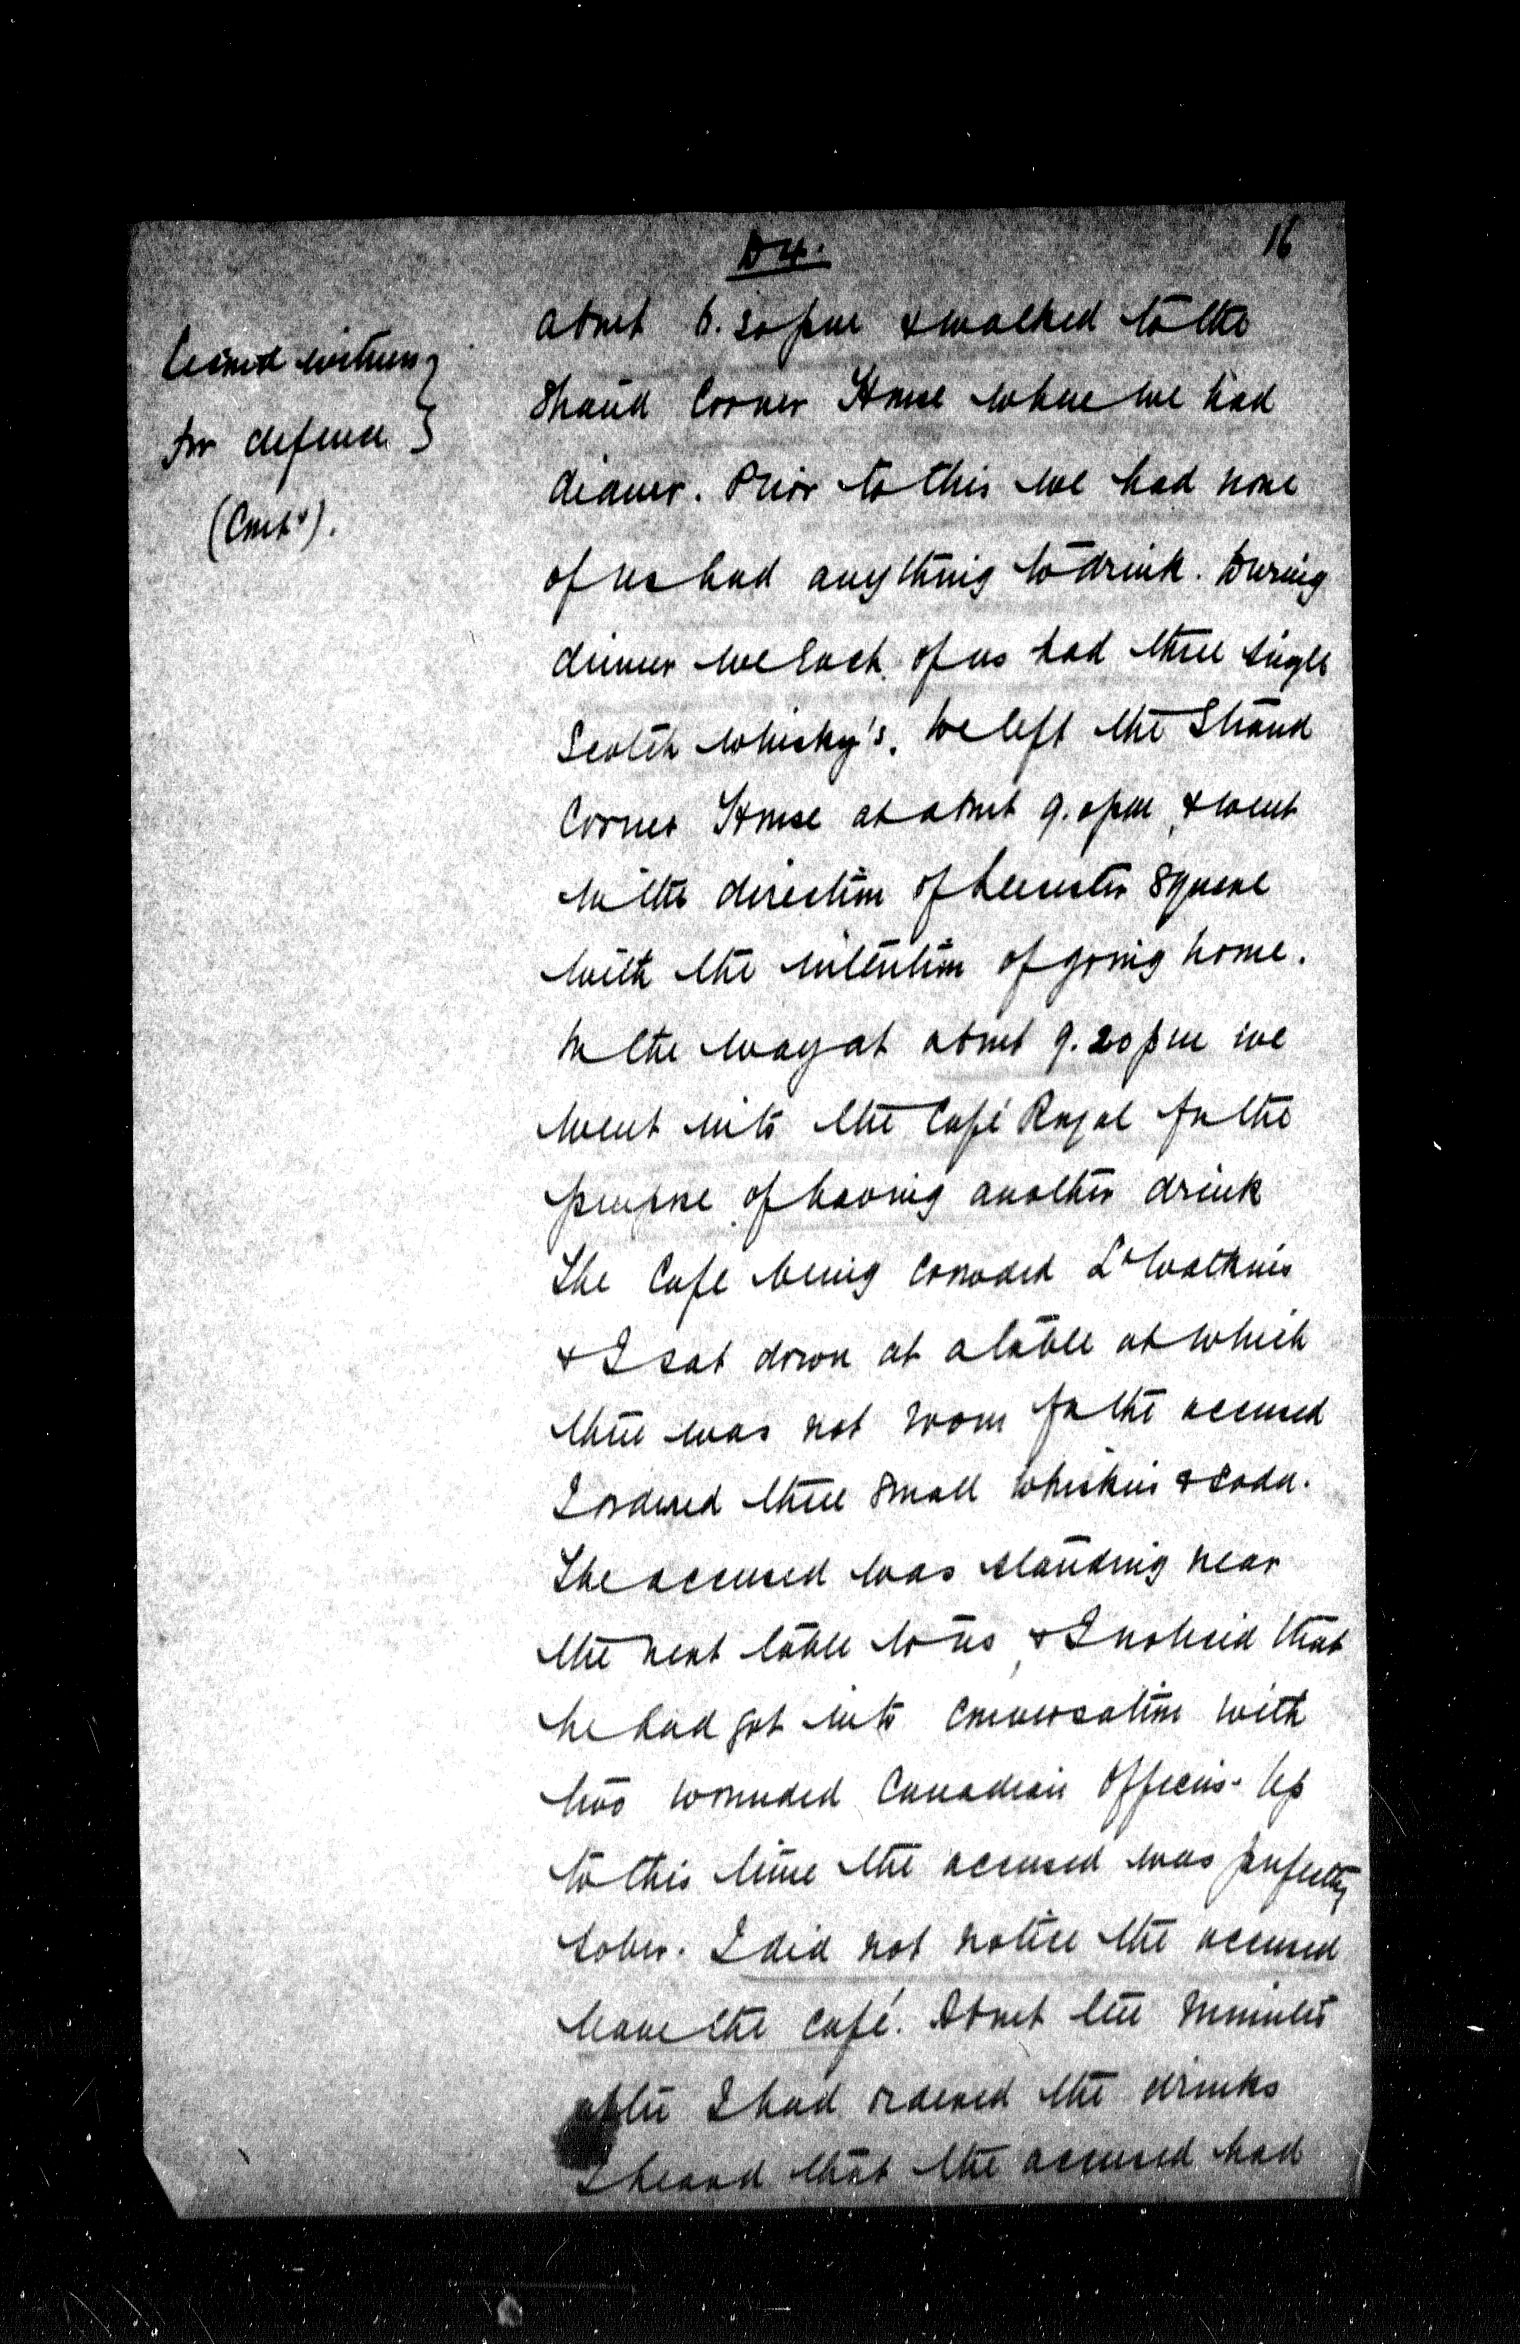 D4.
16
Second witness
for defence
(Contd).
about 6.30pm & walked to the
Strand Corner House where we had
dinner. Prior to this we had none
of us had anything to drink. During
dinner we each of us had three single
Scotch whisky's. We left the Strand
Corner House at about 9.0pm, & went
in the direction of Leicester Square
with the intention of going home.
On the way at about 9.20pm we
went into the Café Royal for the
purpose of having another drink
The Cafe being crowded Lt Watkins
& I sat down at a table at which
there was not room for the accused
I ordered three small whiskies & soda.
The accused was standing near
the next table to us, & I noticed that
he had got into conversation with
two wounded Canadian Officers. Up
to this time the accused was perfectly
sober. I did not notice the accused
leave the café. About ten minutes
after I had ordered the drinks
I heard that the accused had